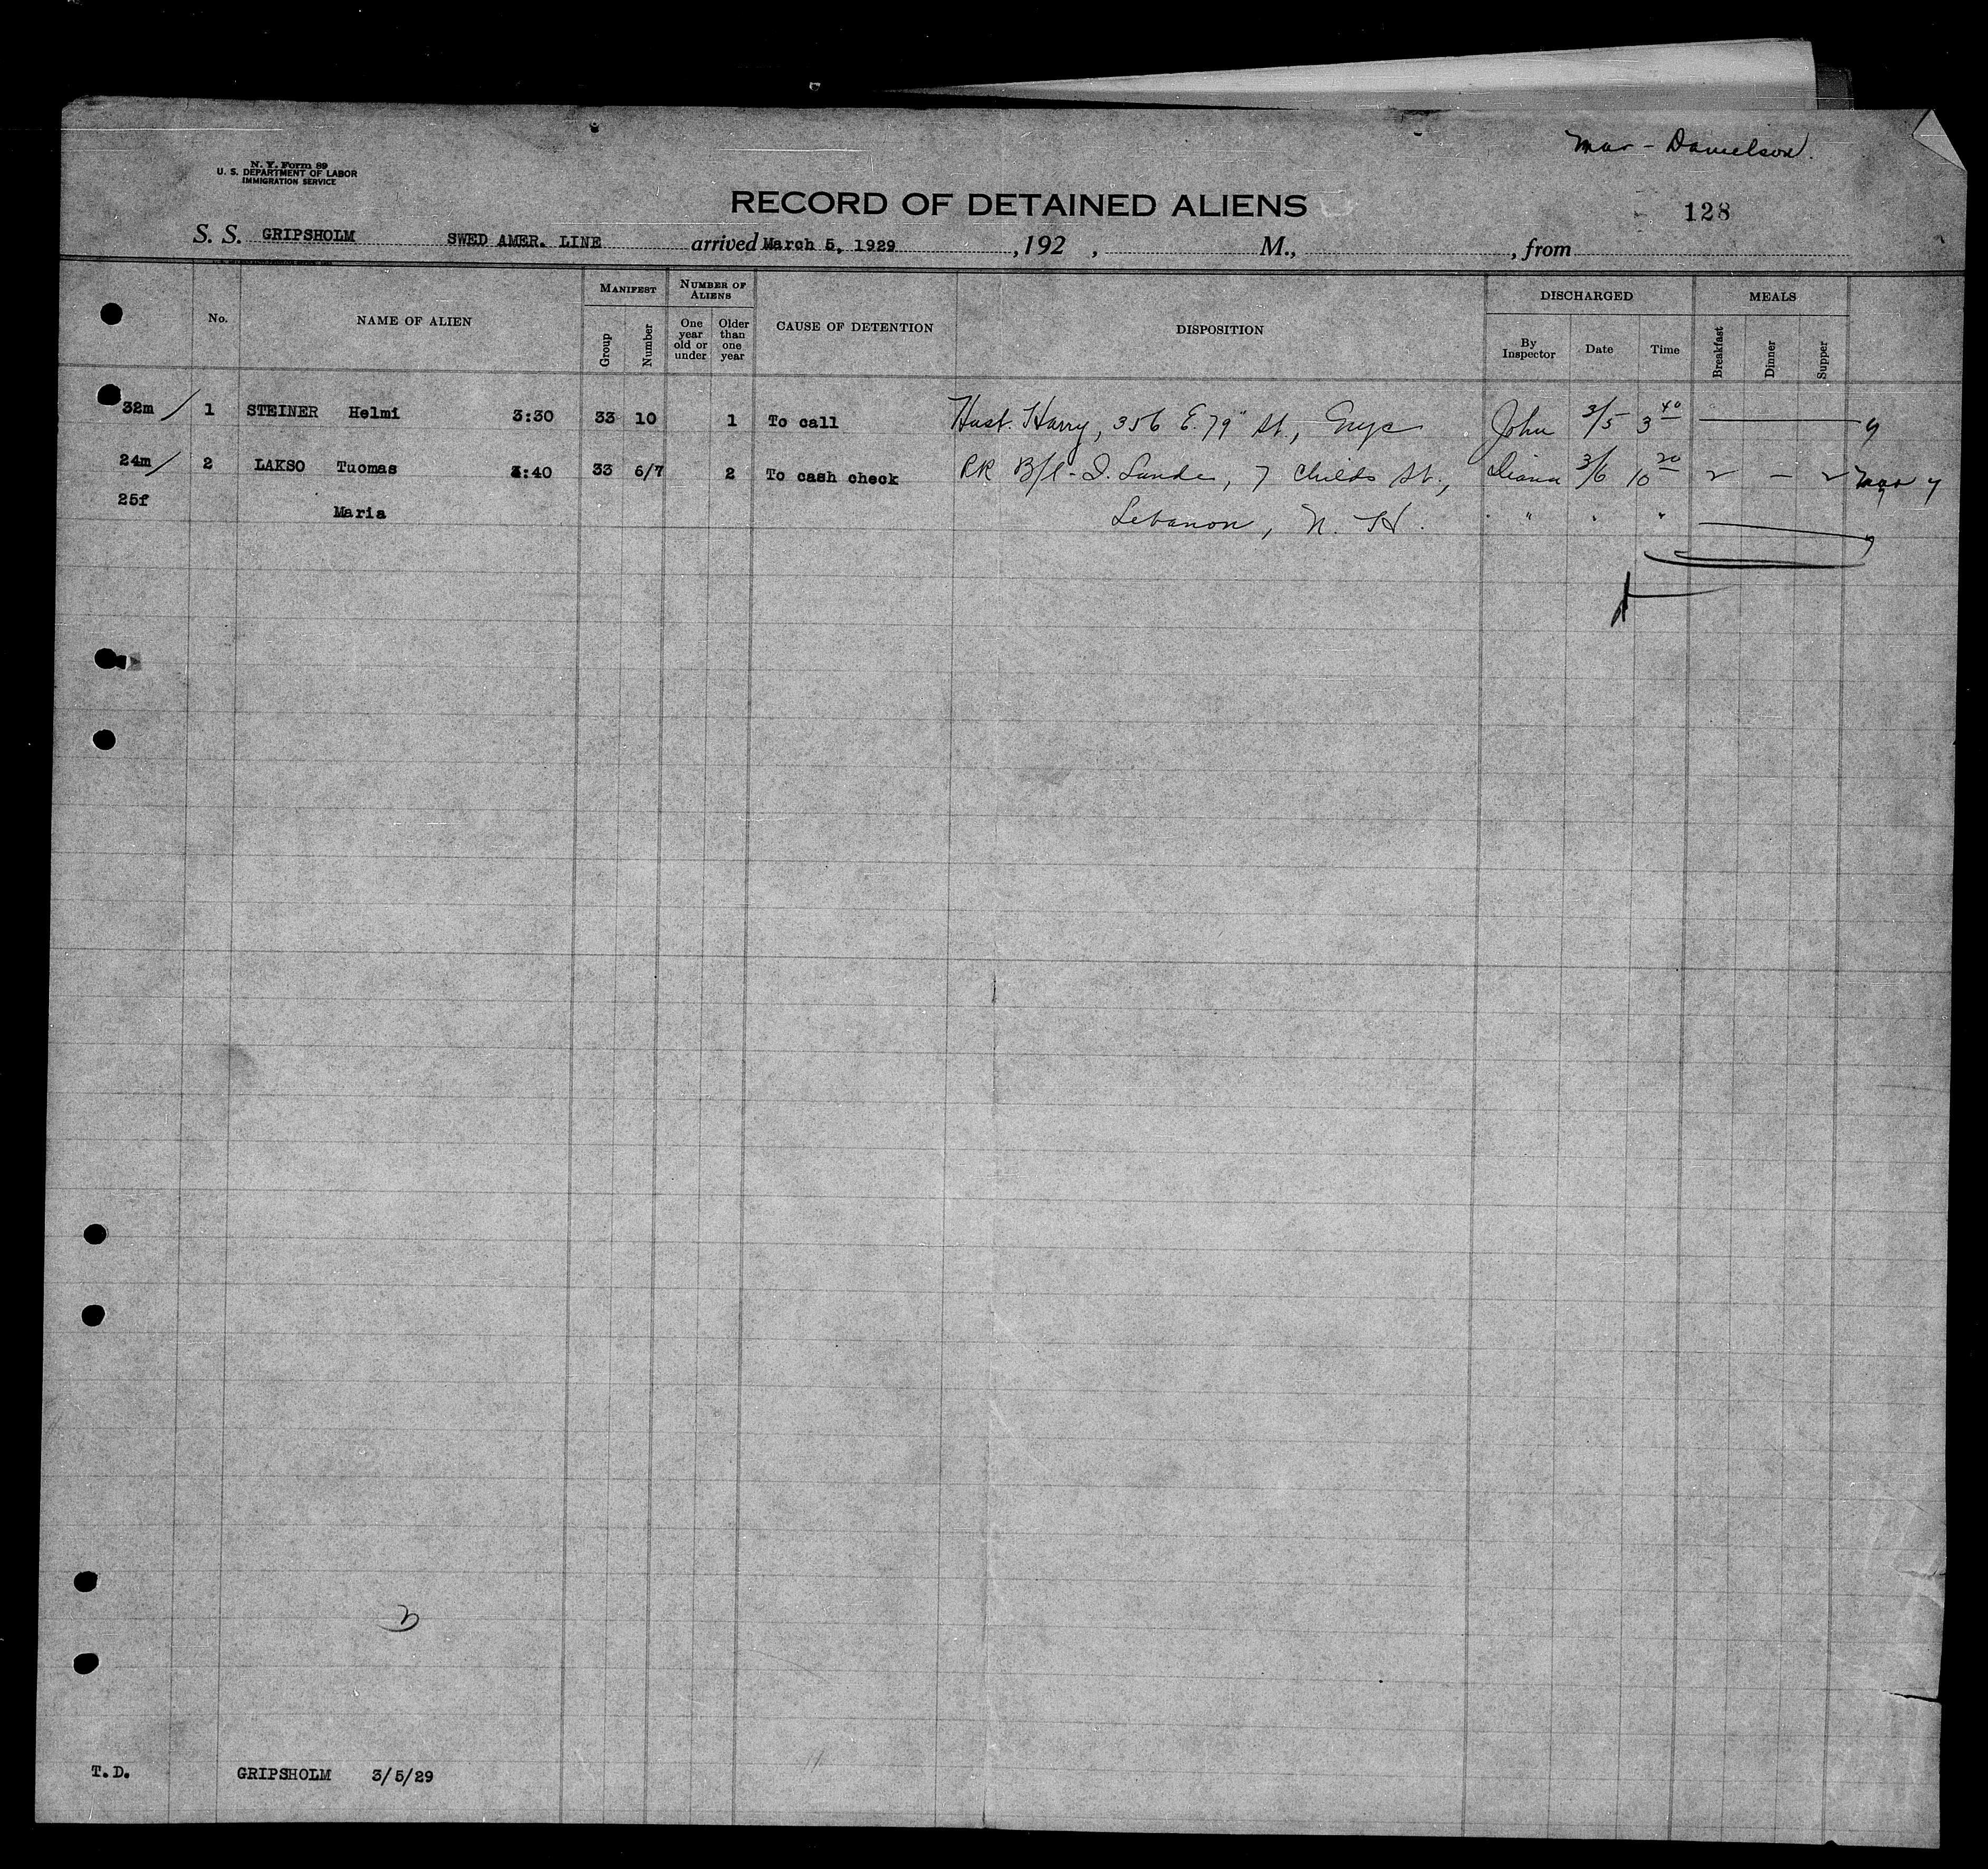 Mar - Danielson.
N. Y. Form 89
U. S. DEPARTMENT OF LABOR
IMMIGRATION SERVICE
RECORD OF DETAINED ALIENS
128
S. S. GRIPSHOLM SWED AMER. LINE arrived March 5, 1929 , 192 , M., , from
No. NAME OF ALIEN MANIFEST Group Number NUMBER OF ALIENS One year old or under Older than one year CAUSE OF DETENTION DISPOSITION DISCHARGED By Inspector Date Time MEALS Breakfast Dinner Supper
32m / 1 STEINER Helmi 3:30 33 10 1 To call Husb. Harry, 356 E. 79" St., Nyc John 3/5 3 40
24m / 2 LAKSO Tuomas :40 33 6/7 2 To cash check RR B/l - Sande, 7 Childs St., Diana 3/6 10 20
25f Maria Lebanon, N. H. " " "
T.D. GRIPSHOLM 3/5/29